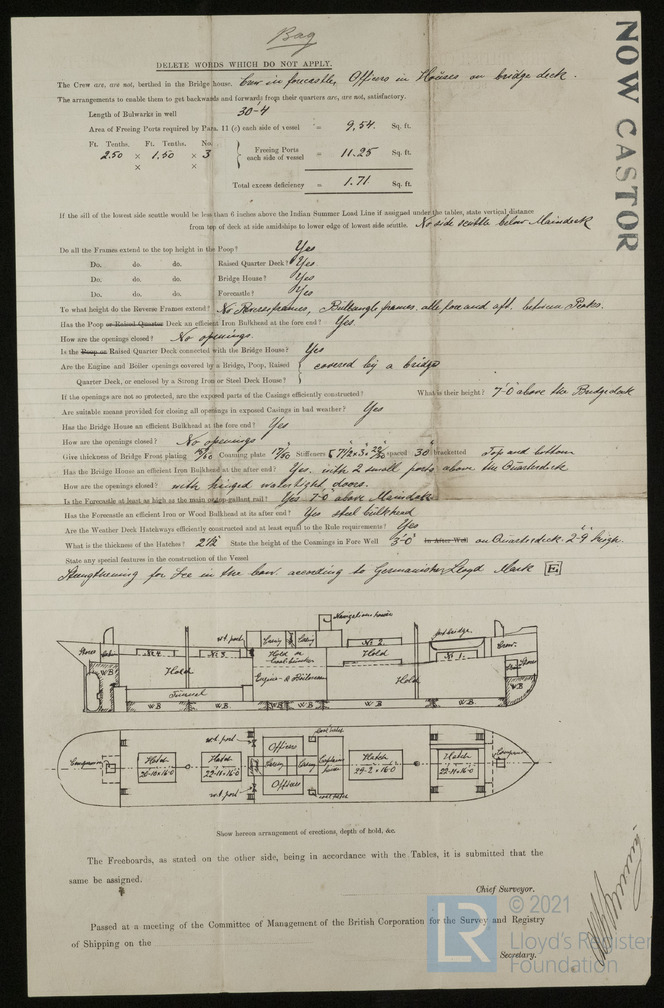 Bag
NOW CASTOR
DELETE WORDS WHICH DO NOT APPLY.
The Crew are, are not, berthed in the Bridge house. Crew in forecastle, Officers in Houses on bridge deck.
The arrangements to enable them to get backwards and forwards from their quarters are, are not, satisfactory.
Length of Bulwarks in well 30-4
Area of Freeing Ports required by Para. 11 (c) each side of vessel = 9,54. Sq. ft.
Ft. Tenths. Ft. Tenths. No.
2.50 × 1.50 × 3 Freeing Ports each side of vessel = 11.25 Sq. ft.
× ×
Total excess deficiency = 1.71 Sq. ft.
If the sill of the lowest side scuttle would be less than 6 inches above the Indian Summer Load Line if assigned under the tables, state vertical distance
from top of deck at side amidships to lower edge of lowest side scuttle. No side scuttle below Maindeck
Do all the Frames extend to the top height in the Poop? Yes
Do. do. do. Raised Quarter Deck? Yes
Do. do. do. Bridge House? Yes
Do. do. do. Forecastle? Yes
To what height do the Reverse Frames extend? No Reverseframes, Bulbangle frames. alle fore and aft. between Peaks.
Has the Poop or Raised Quarter Deck an efficient Iron Bulkhead at the fore end? Yes.
How are the openings closed? No openings.
Is the Poop or Raised Quarter Deck connected with the Bridge House? Yes
Are the Engine and Boiler openings covered by a Bridge, Poop, Raised
Quarter Deck, or enclosed by a Strong Iron or Steel Deck House? covered by a bridge
If the openings are not so protected, are the exposed parts of the Casings efficiently constructed? What is their height? 7-0 above the Bridgedeck
Are suitable means provided for closing all openings in exposed Casings in bad weather? Yes
Has the Bridge House an efficient Bulkhead at the fore end? Yes
How are the openings closed? No openings
Give thickness of Bridge Front plating Coaming plate Stiffeners spaced 30" bracketted Top and bottom
Has the Bridge House an efficient Iron Bulkhead at the after end? Yes. with 2 small ports above the Quarterdeck
How are the openings closed? with hinged watertight doors.
Is the Forecastle at least as high as the main or top-gallant rail? Yes 7-0 above Maindeck.
Has the Forecastle an efficient Iron or Wood Bulkhead at its after end? Yes steel bulkhead
Are the Weather Deck Hatchways efficiently constructed and at least equal to the Rule requirements? Yes
What is the thickness of the Hatches? 2½ State the height of the Coamings in Fore Well 3'-0" In After Well on Quarterdeck 2'-9" high.
State any special features in the construction of the Vessel
Strengthening for Ice in the bow. according to Germanischer Lloyd Mark [E]
Navigation house
wt. port Casing Casing No 2 Crew.
Stores No 4 No 3 Hold or No 1
W B Hold Engine- & Boilerroom Hold Hold W B
Tunnel
W B W B W B W B W B W B
wt port Officers
Companion Hatch 20-10 × 16-0 Hatch 22-11 × 16-0 Casing Casing Hatch 29-2 × 16-0 Hatch 22-11 × 16-0 Companion
wt port Officers
Show hereon arrangement of erections, depth of hold, &c.
The Freeboards, as stated on the other side, being in accordance with the Tables, it is submitted that the
same be assigned.
Chief Surveyor.
Passed at a meeting of the Committee of Management of the British Corporation for the Survey and Registry
of Shipping on the
Secretary.
LR © 2021
Lloyd's Register
Foundation